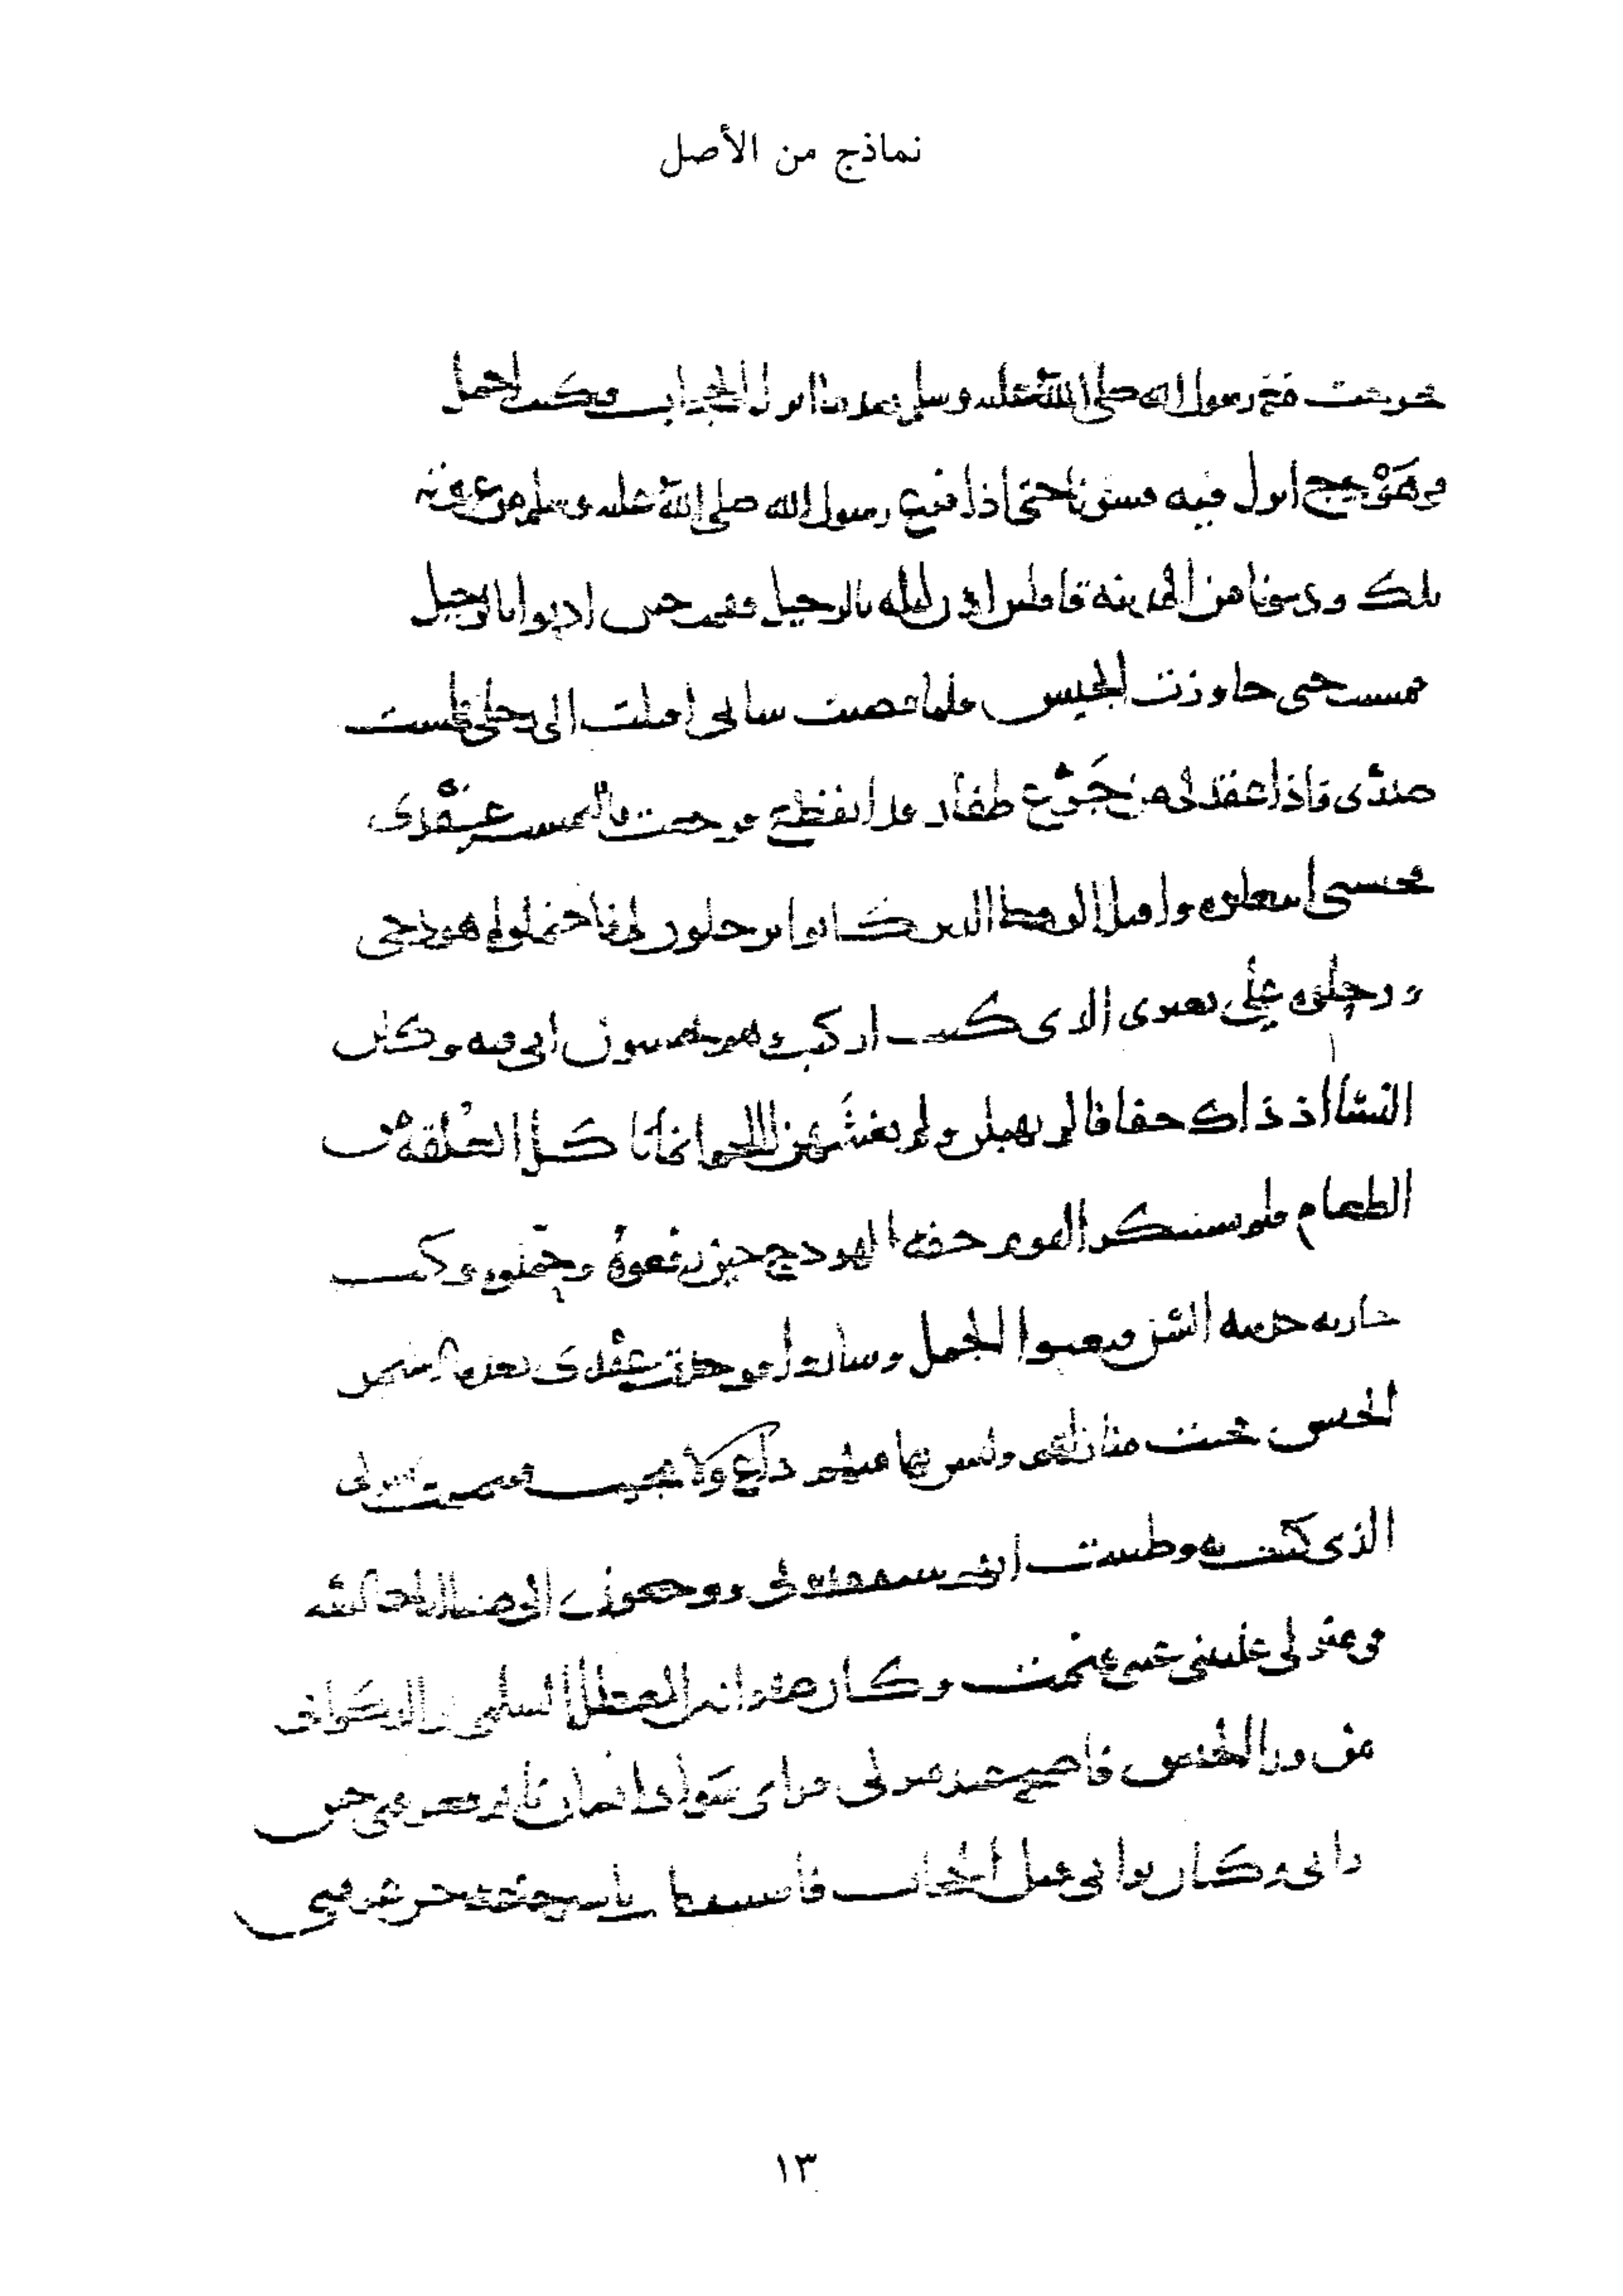 نماذج من الأصل
فخرجت مع رسول الله صلى الله عليه وسلم بعدما انزل الحجاب وكنت احمل
في هودج انزل فيه فسرنا حتى اذا فرغ رسول الله صلى الله عليه وسلم من غزوته
تلك ودنونا من المدينة قافلين اذن ليلة بالرحيل فقمت حين اذنوا بالرحيل
فمشيت حتى جاوزت الجيش فلما قضيت شاني اقبلت الى رحلي فلمست
صدري فاذا عقد لي من جزع ظفار قد انقطع فرجعت فالتمست عقدي
فحبسني ابتغاوه واقبل الرهط الذين كانوا يرحلون لي فاحتملوا هودجي
ورحلوه على بعيري الذي كنت اركب وهم يحسبون اني فيه وكان
النسا اذ ذاك خفافا لم يهبلن ولم يغشهن اللحم انما ناكل العلقة من
الطعام فلم يستنكر القوم خفة الهودج حين رفعوه وحملوه وكنت
جارية حديثة السن فبعثوا الجمل وساروا فوجدت عقدي بعدما استمر
الجيش فجئت منازلهم وليس بها منهم داع ولا مجيب فتيممت منزلي
الذي كنت به وظننت انهم سيفقدوني فيرجعون الي فبينا انا جالسة
في منزلي غلبتني عيني فنمت وكان صفوان بن المعطل السلمي ثم الذكواني
من ورا الجيش فاصبح عند منزلي فراى سواد انسان نايم فعرفني حين
راني وكان يراني قبل الحجاب فاستيقظت باسترجاعه حين عرفني
١٣